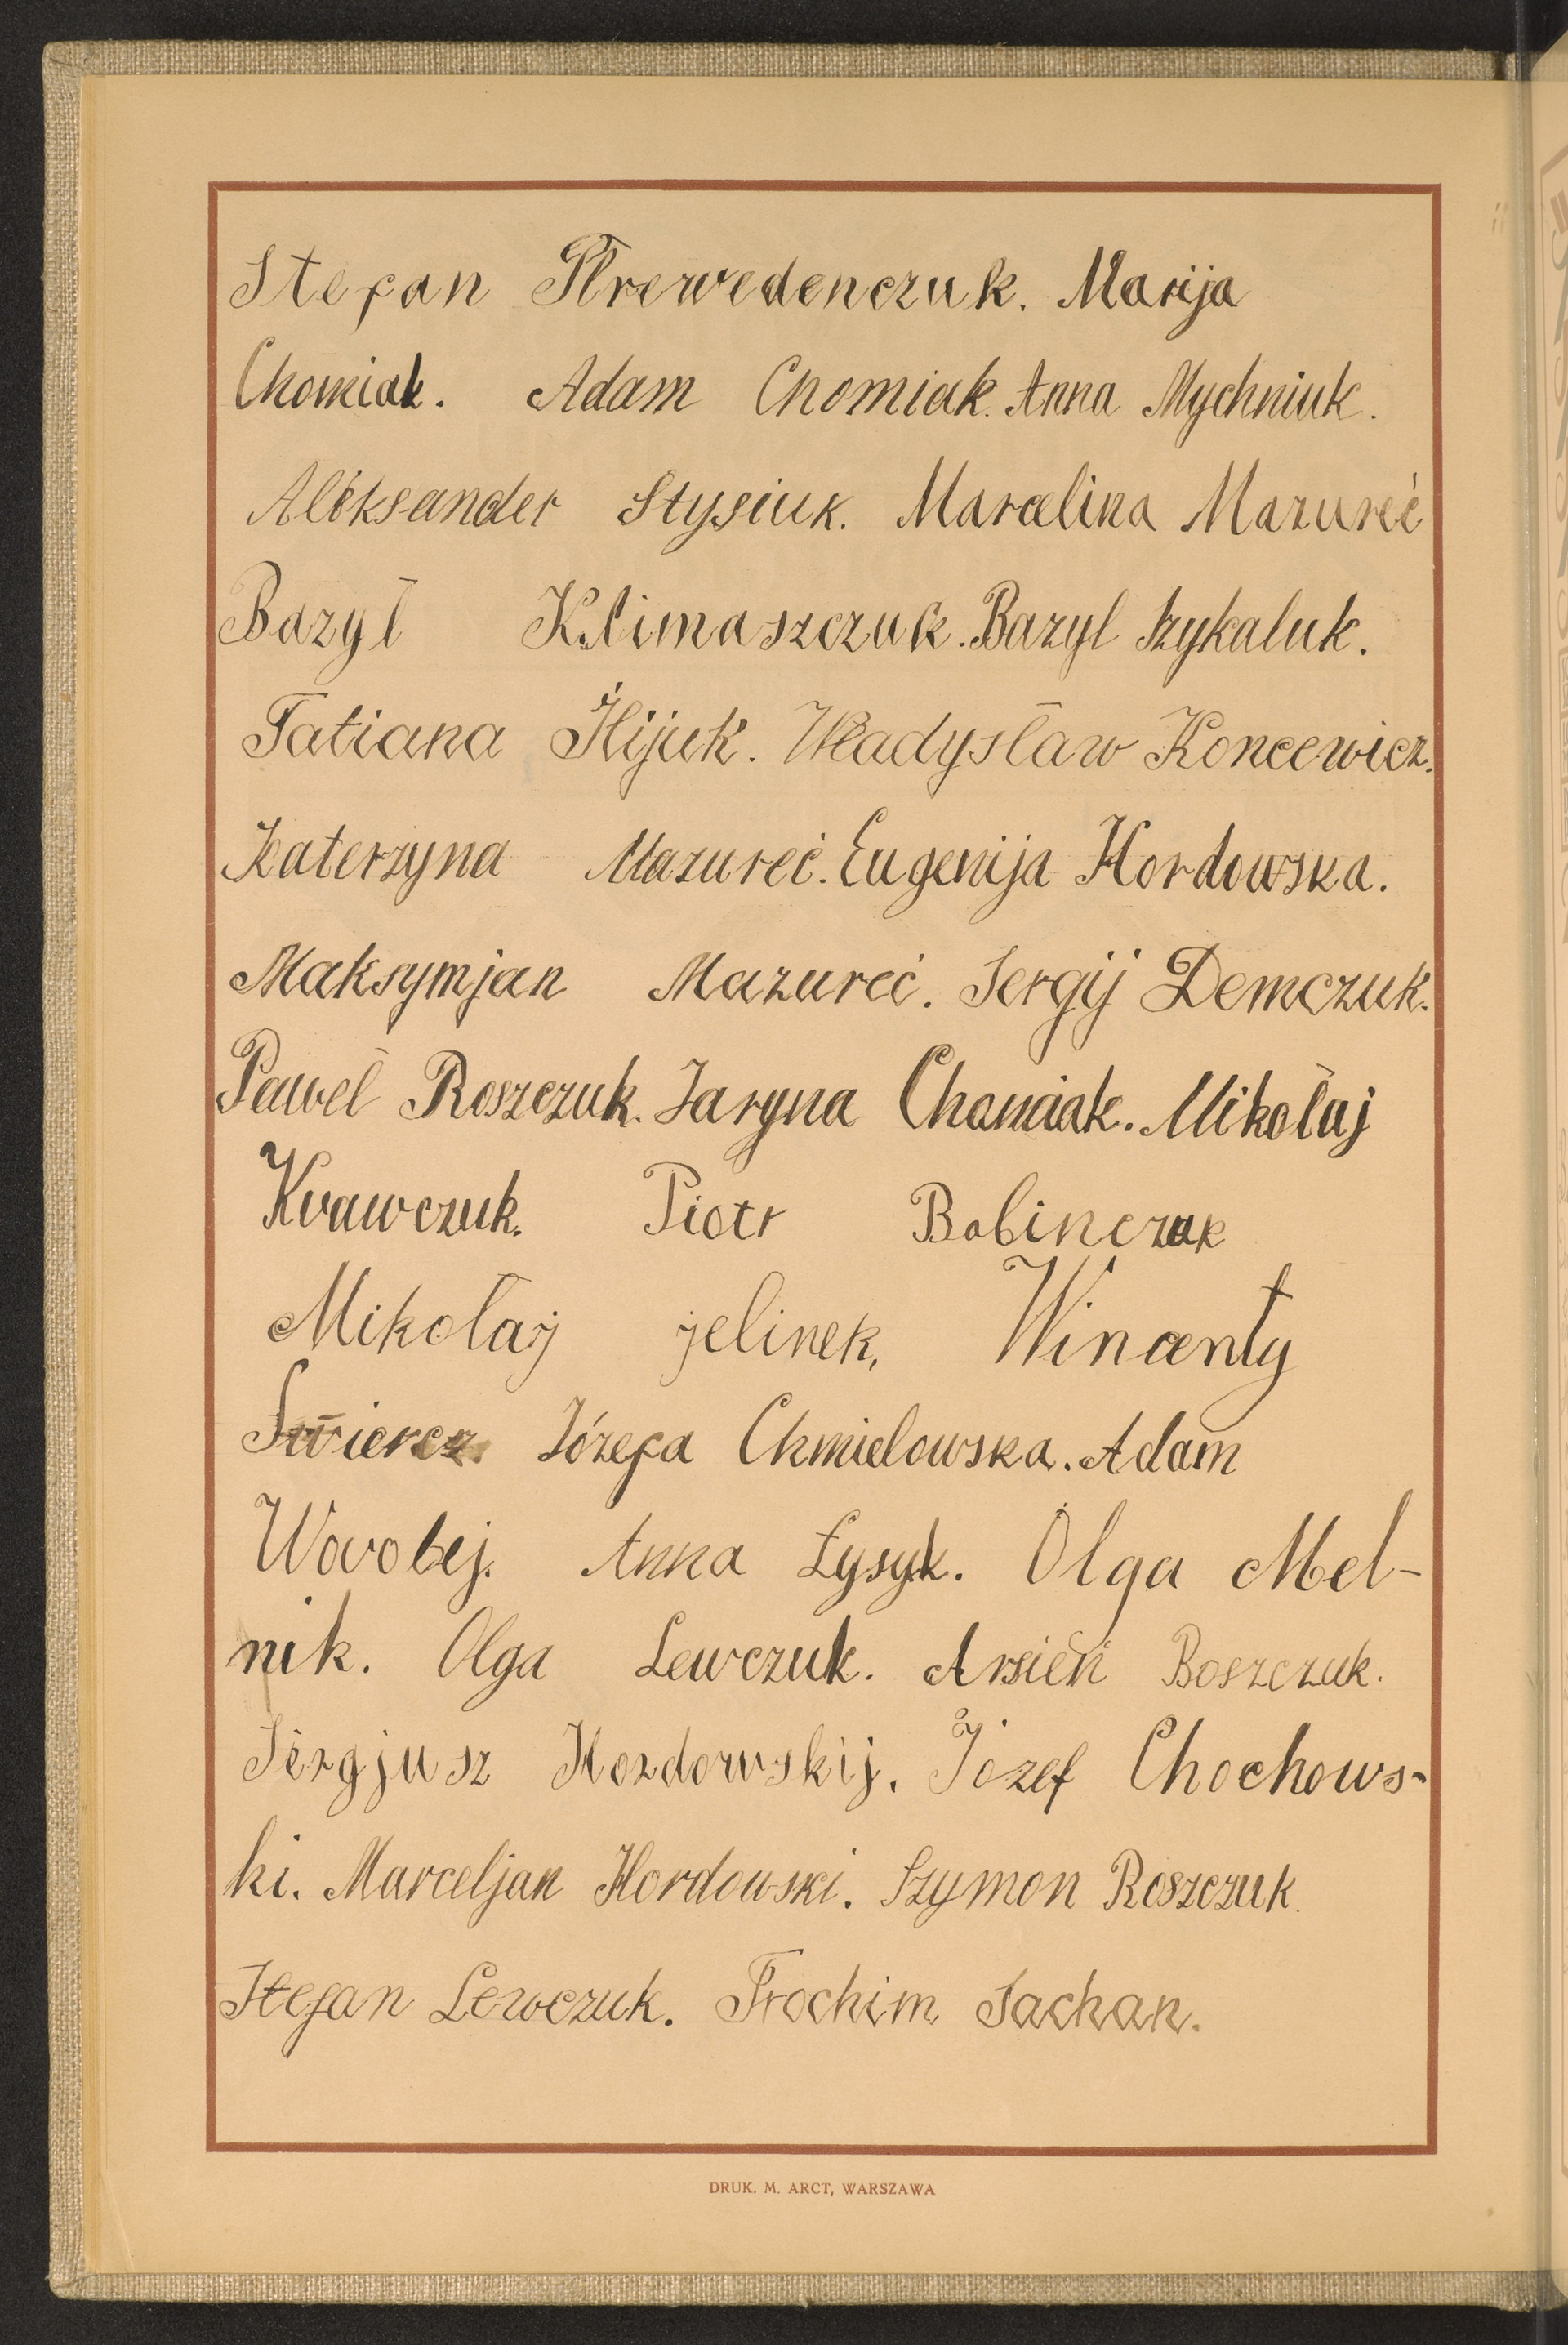 Stefan Prewedenczuk. Marija
Chomiak. Adam Chomiak. Anna Mychniuk.
Aleksander Stysiuk. Marcelina Mazureć
Bazyl Klimaszczuk. Bazyl Szykaluk.
Tatiana Hijuk. Władysław Koncewicz.
Katerzyna Mazureć. Eugenija Hordowska.
Maksymjan Mazureć. Sergij Demczuk.
Paweł Roszczuk. Jaryna Chomiak. Mikołaj
Krawczuk. Piotr Babinczuk
Mikołaj jelinek, Wincenty
Świercz Józefa Chmielowska. Adam
Worobej. Anna Łysyk. Olga Mel-
nik. Olga Lewczuk. Arsień Boszczuk.
Sergjusz Hordowskij. Józef Chochows-
ki. Marceljan Hordowski. Szymon Roszczuk.
Stefan Lewczuk. Trochim Sachan.
DRUK. M. ARCT, WARSZAWA